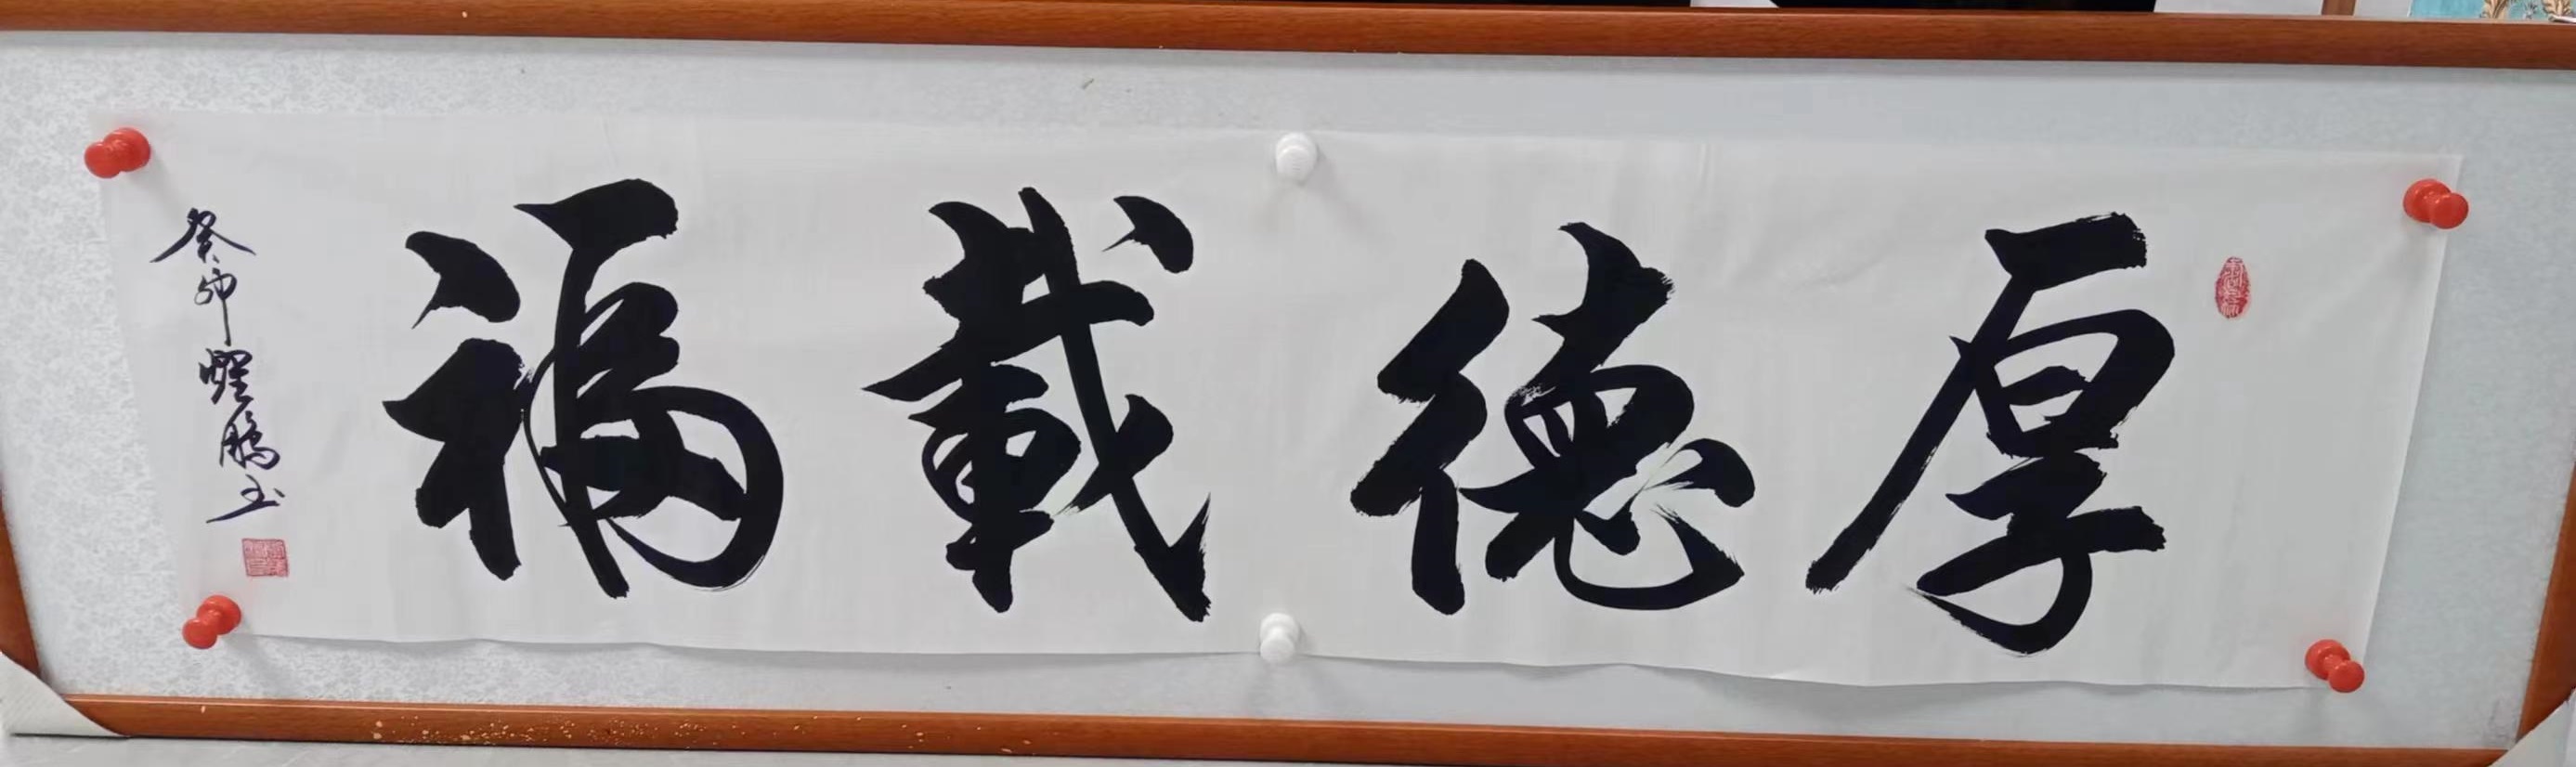 厚德載福
癸卯耀鵬书